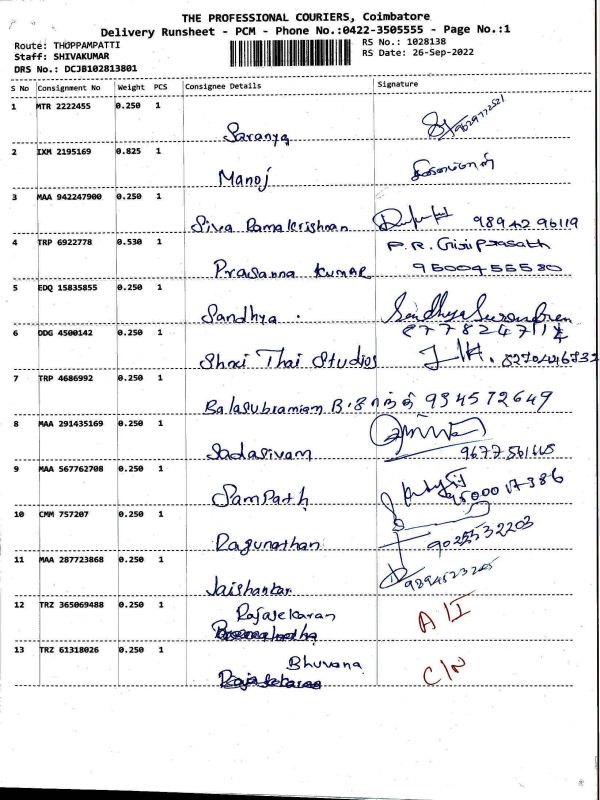 THE PROFESSIONAL COURIERS, Coimbatore
Delivery Runsheet - PCM - Phone No.:0422-3505555 - Page No.:1
Route: THOPPAMPATTI
RS No.: 1028138
Staff: SHIVAKUMAR
RS Date: 26-Sep-2022
DRS No.: DCJB102813801
S No Consignment No Weight PCS Consignee Details Signature
1 MTR 2222455 0.250 1
Saranya
2 IXM 2195169 0.825 1
Manoj
3 MAA 942247900 0.250 1
Siva Ramakrishnan 98942 96119
4 TRP 6922778 0.530 1 P.R. Giri Prasath
Prasanna Kumar 9500455580
5 EDQ 15835855 0.250 1
Sandhya .
6 DDG 4500142 0.250 1
Shri Thai Studios
7 TRP 4686992 0.250 1
Balasubramian 934572649
8 MAA 291435169 0.250 1
Sadasivam
9 MAA 567762708 0.250 1
Sampath 9500017386
10 CMM 757207 0.250 1
Ragunathan 9025532203
11 MAA 287723868 0.250 1
Jaishankar
12 TRZ 365069488 0.250 1
Rajasekaran
13 TRZ 61318026 0.250 1
Bhuvana C/N